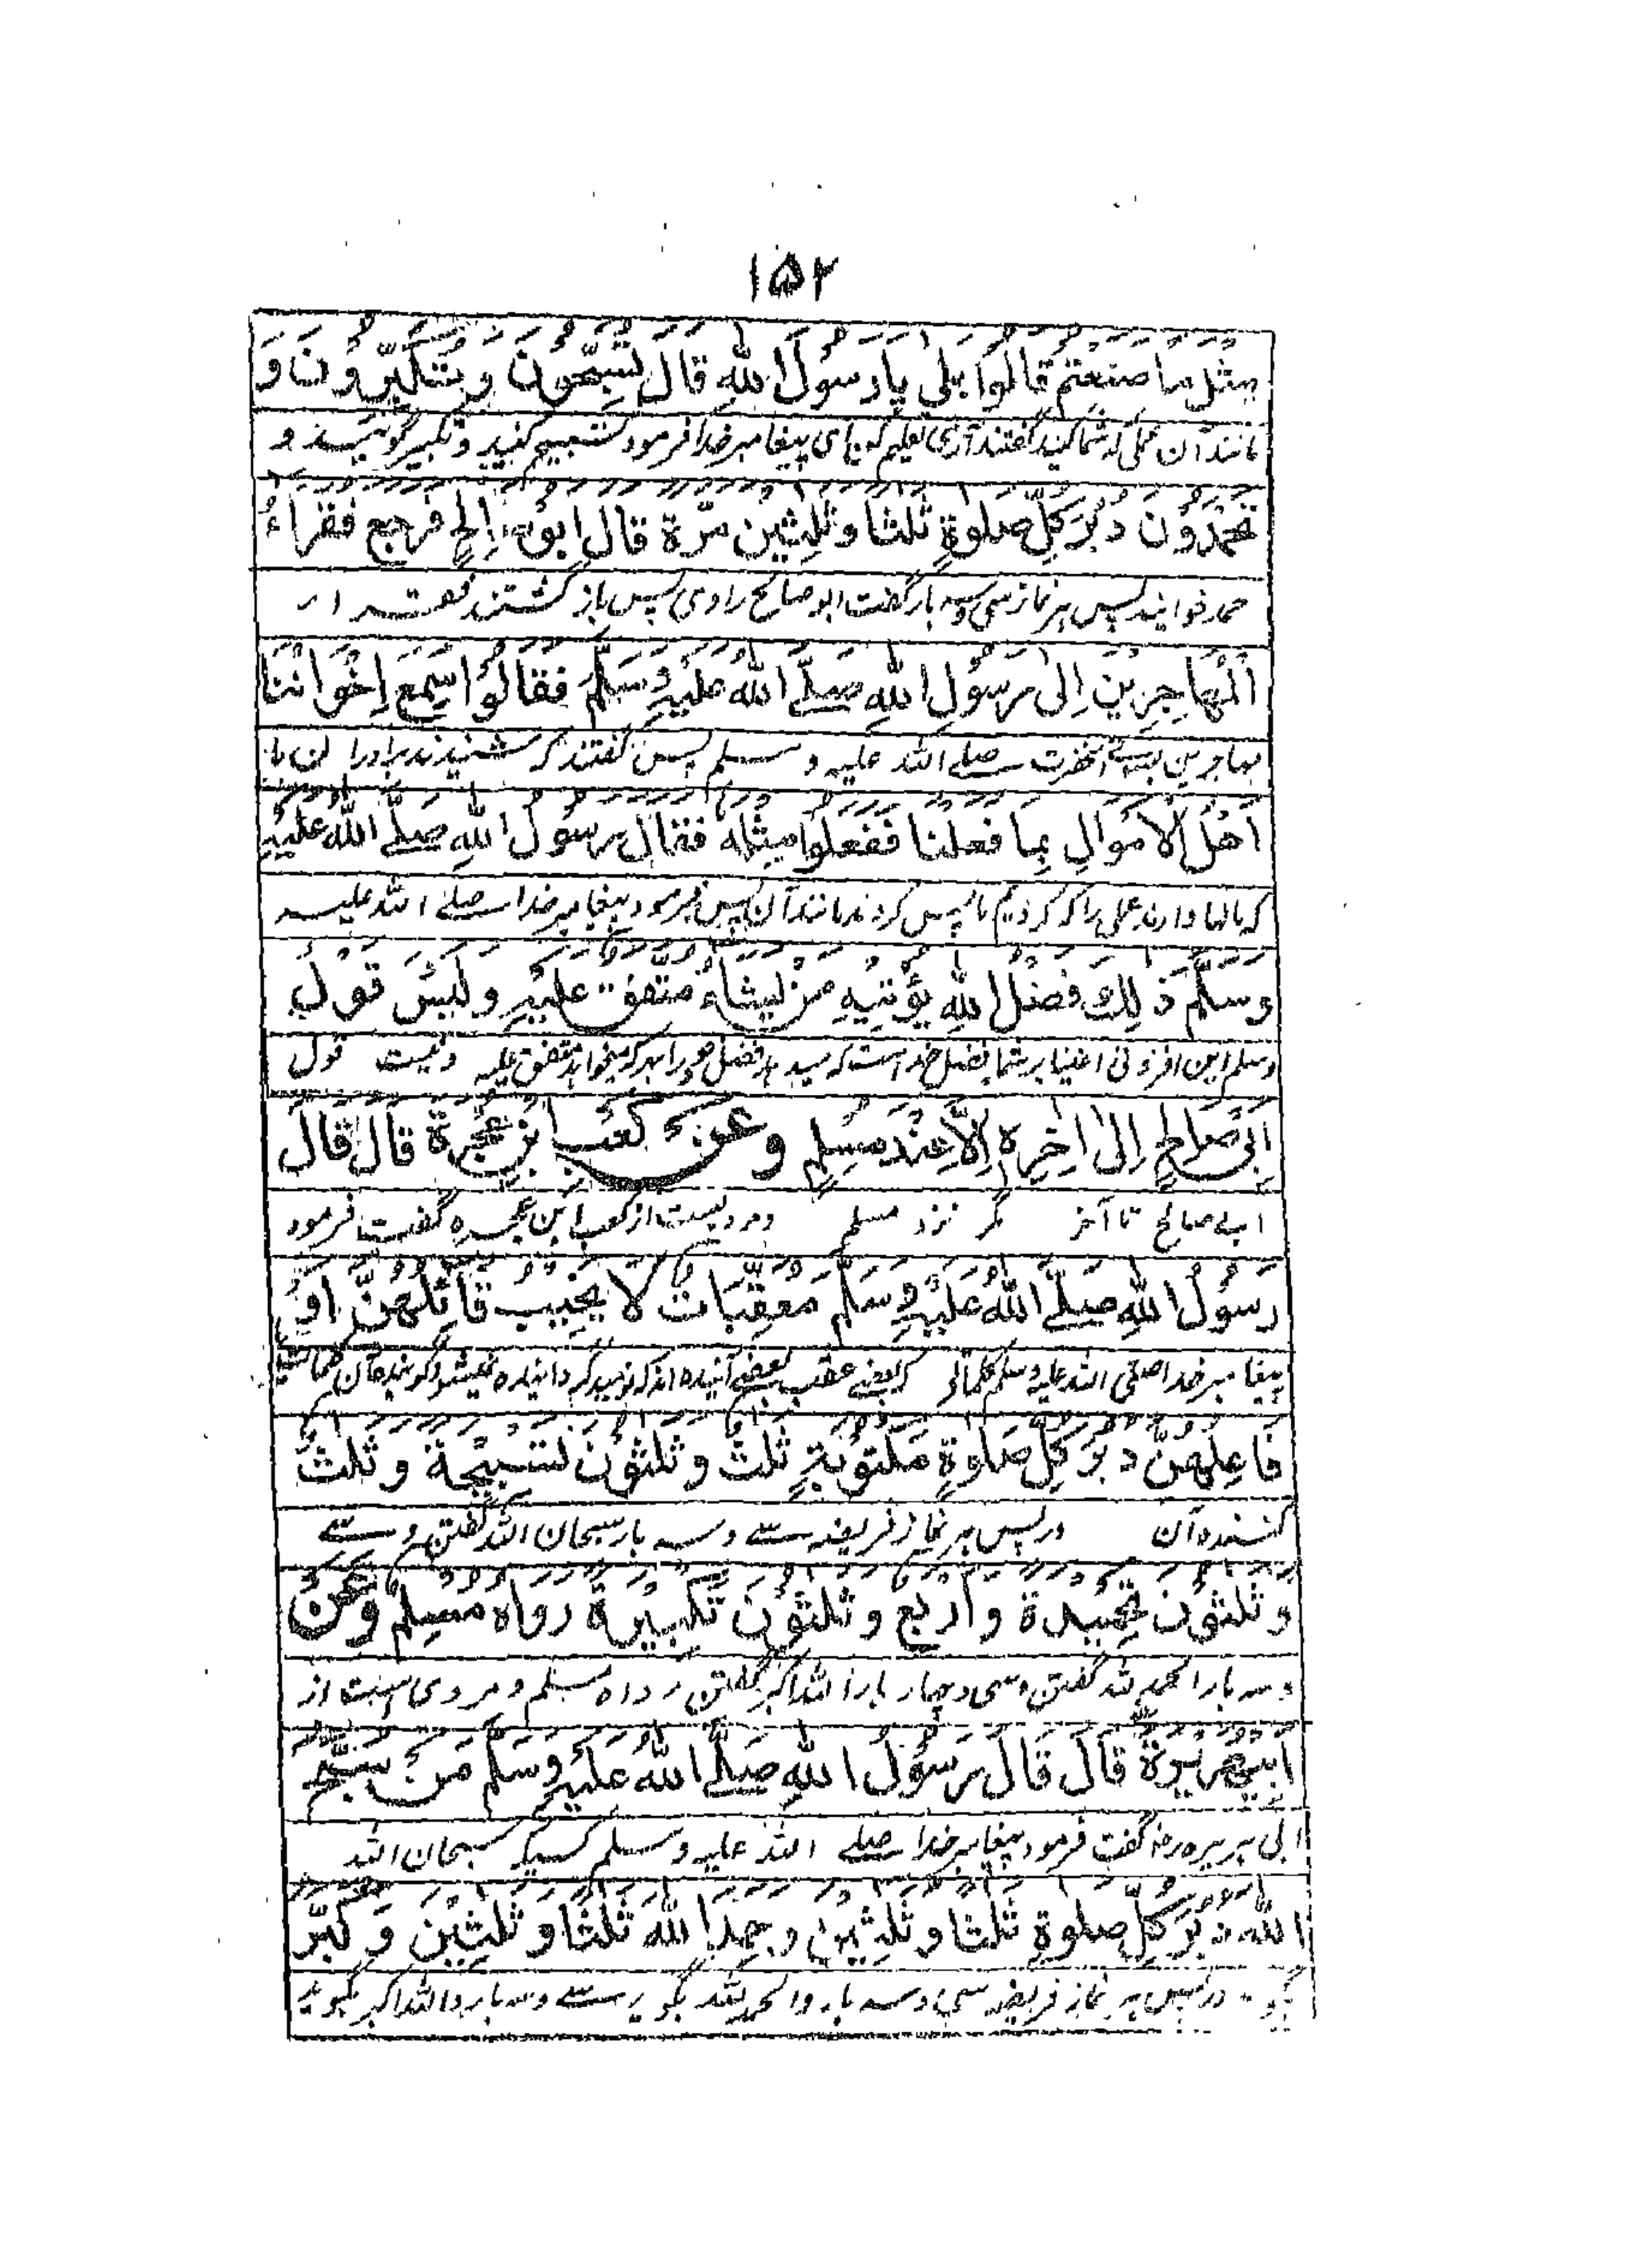 ۱۵۲
مِثْلَ مَا صَنَعْتُمْ قَالُوا بَلٰى يَا رَسُوْلَ اللهِ قَالَ تُسَبِّحُوْنَ وَتُكَبِّرُوْنَ وَ
مانند آن عملی که شما کنید گفتند آری تعلیم کن یا ای پیغامبر خدا فرمود تسبیح کنید و تکبیر گوئید و
تَحْمَدُوْنَ دُبُرَ كُلِّ صَلٰوةٍ ثَلٰثًا وَثَلٰثِيْنَ مَرَّةً قَالَ اَبُوْ صَالِحٍ فَرَجَعَ فُقَرَاءُ
حمد خوانید پس هر نماز سی و سه بار گفت ابو صالح راوی پس باز گشتند فقراء
الْمُهَاجِرِيْنَ اِلٰى رَسُوْلِ اللهِ صَلَّے اللهُ عَلَيْهِ وَسَلَّمَ فَقَالُوْا سَمِعَ اِخْوَانُنَا
مهاجرین بسوے آنحضرت صلے الله علیه و سلم پس گفتند که شنیدند برادران ما
اَهْلُ الْاَمْوَالِ بِمَا فَعَلْنَا فَفَعَلُوْا مِثْلَهٗ فَقَالَ رَسُوْلُ اللهِ صَلَّے اللهُ عَلَيْهِ
که مالها دارند عملی را که کردیم ما پس کردند مانند آن پس فرمود پیغامبر خدا صلے الله علیه
وَسَلَّمَ ذٰلِكَ فَضْلُ اللهِ يُؤْتِيْهِ مَنْ يَّشَاءُ مُتَّفَقٌ عَلَيْهِ وَلَيْسَ قَوْلُ
وسلم این افزونی اغنیا بر شما فضل خداست که میدهد فضل خود را بهر که میخواهد متفق علیه و نیست قول
اَبِيْ صَالِحٍ اِلٰى اٰخِرِهٖ اِلَّا عِنْدَ مُسْلِمٍ وَعَنْ كَعْبِ ابْنِ عُجْرَةَ قَالَ قَالَ
ابی صالح تا آخر مگر نزد مسلم و مرویست از کعب ابن عجره گفت فرمود
رَسُوْلُ اللهِ صَلَّے اللهُ عَلَيْهِ وَسَلَّمَ مُعَقِّبَاتٌ لَا يَخِيْبُ قَائِلُهُنَّ اَوْ
پیغامبر خدا صلی الله علیه وسلم کلماتی که بعضے عقب بعضے آینده اند که نومید گردانیده نمیشود گوینده آن کلمات یا
فَاعِلُهُنَّ دُبُرَ كُلِّ صَلٰوةٍ مَكْتُوْبَةٍ ثَلٰثٌ وَثَلٰثُوْنَ تَسْبِيْحَةً وَثَلٰثٌ
کننده آن در پس هر نماز فریضه سے و سه بار سبحان الله گفتن و سے
وَثَلٰثُوْنَ تَحْمِيْدَةً وَاَرْبَعٌ وَثَلٰثُوْنَ تَكْبِيْرَةً رَوَاهُ مُسْلِمٌ وَعَنْ
و سه بار الحمد لله گفتن و سی و چهار بار الله اکبر گفتن رواه مسلم و مروی است از
اَبِيْ هُرَيْرَةَ قَالَ قَالَ رَسُوْلُ اللهِ صَلَّے اللهُ عَلَيْهِ وَسَلَّمَ مَنْ سَبَّحَ
ابی هریره رض گفت فرمود پیغامبر خدا صلے الله علیه و سلم کسیکه سبحان الله
اللهَ دُبُرَ كُلِّ صَلٰوةٍ ثَلٰثًا وَثَلٰثِيْنَ وَحَمِدَ اللهَ ثَلٰثًا وَثَلٰثِيْنَ وَكَبَّرَ
در پس هر نماز فریضه سی و سه بار و الحمد لله بگوید سے و سه بار و الله اکبر بگوید